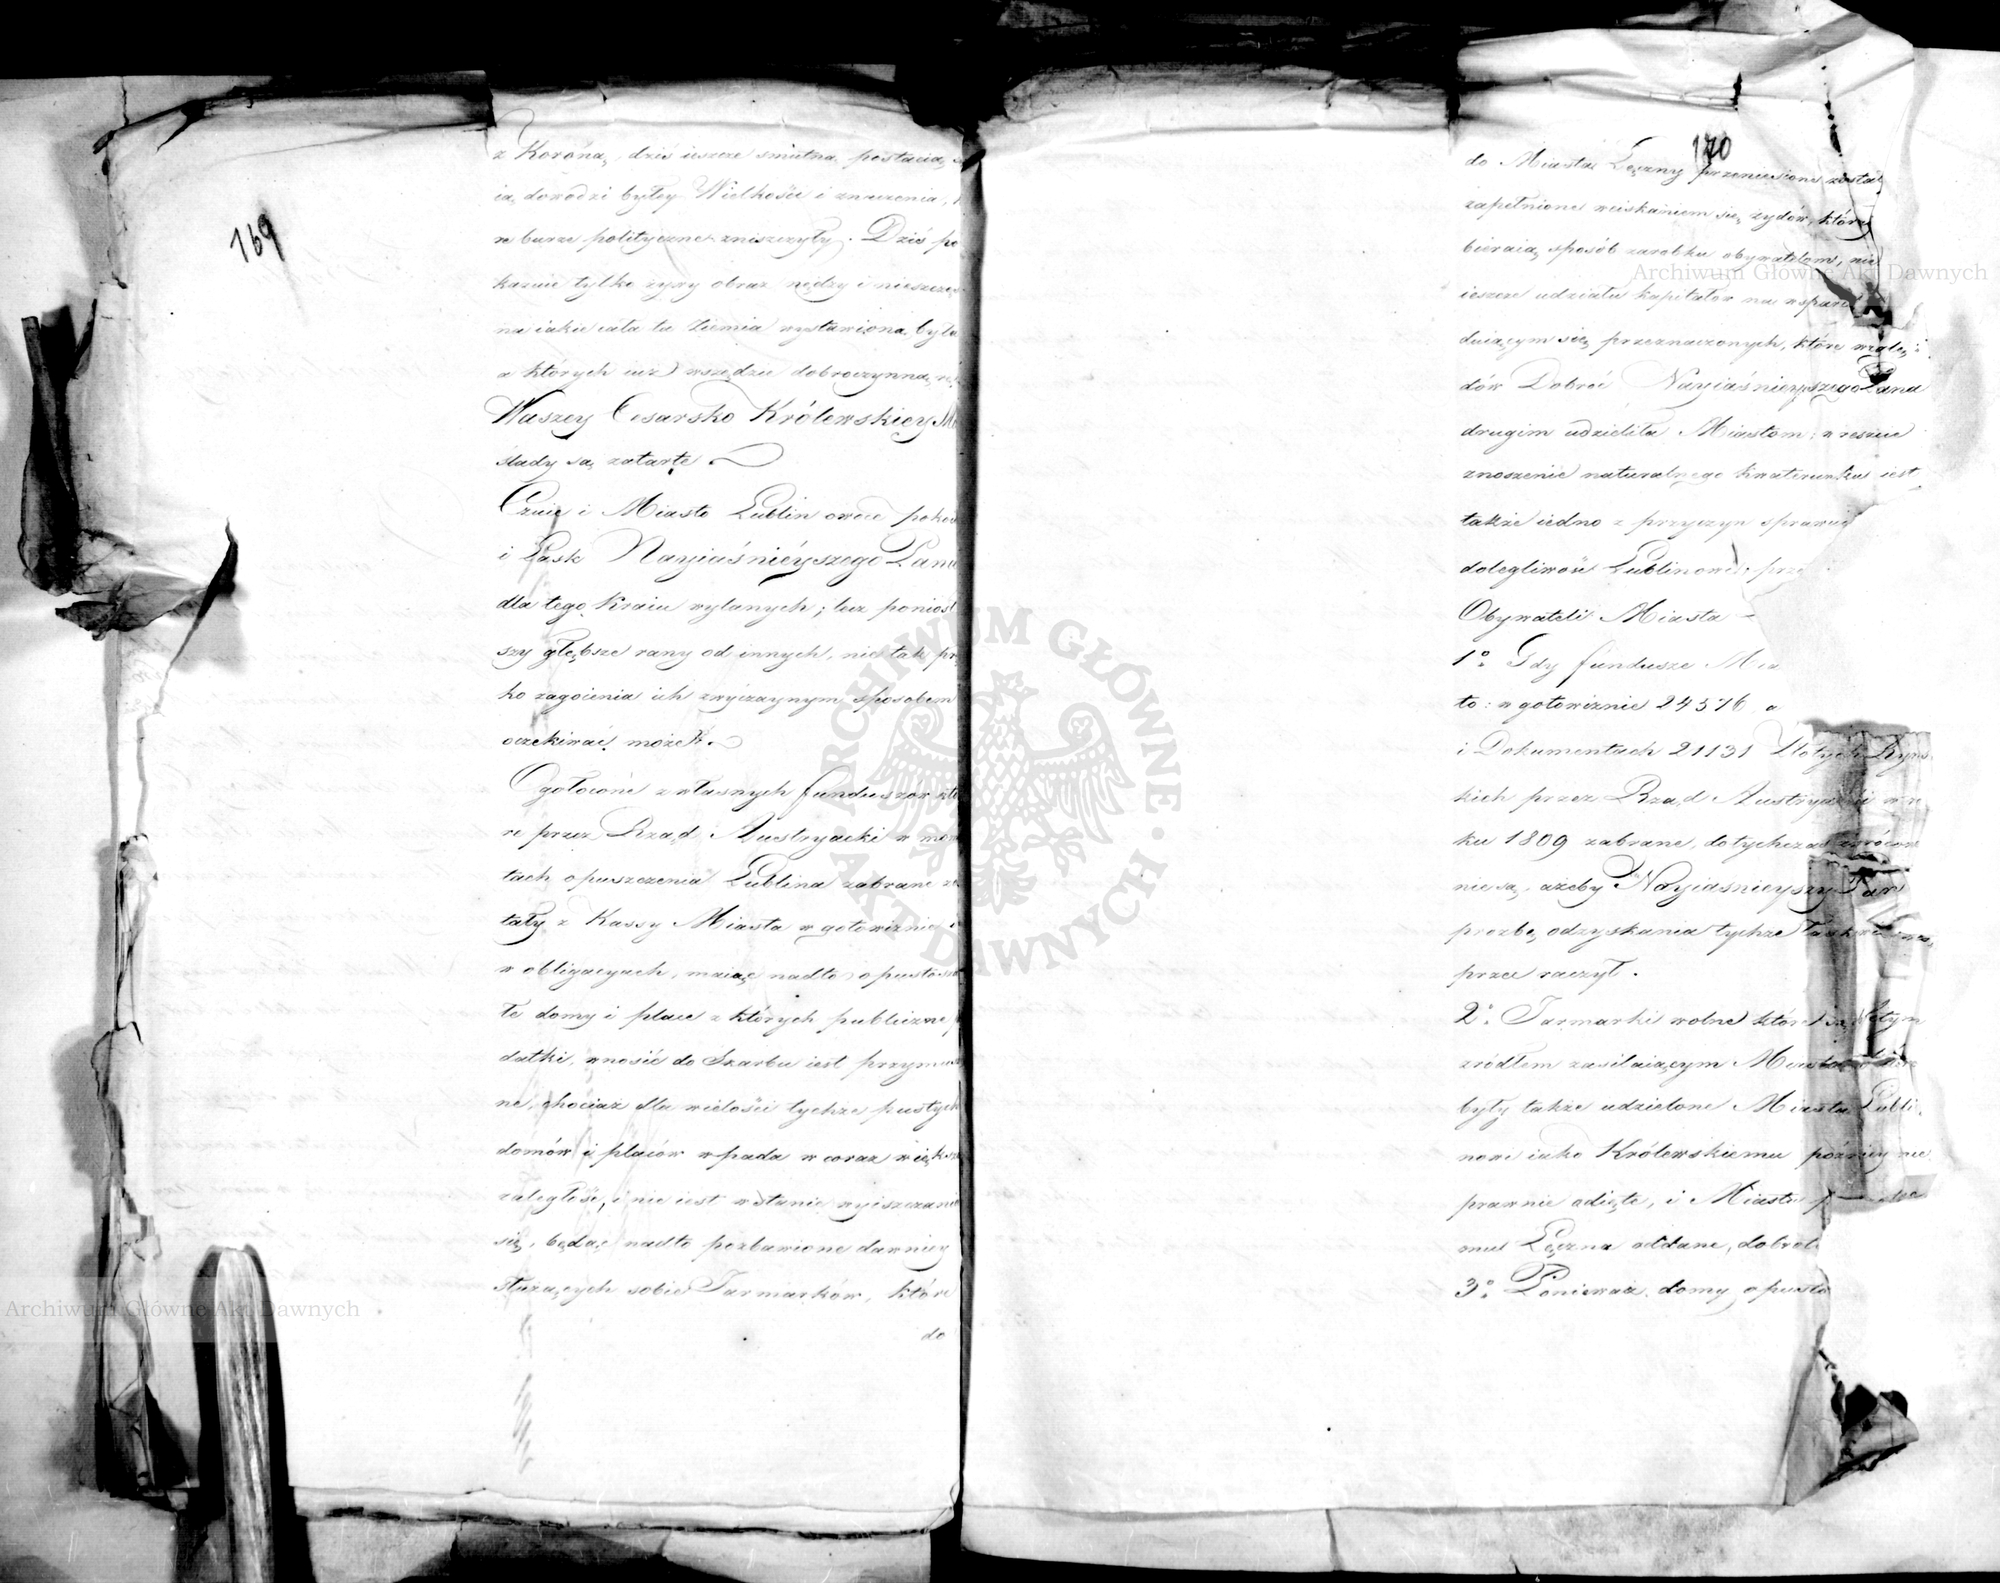 169
z Koroną, dziś ieszcze smutną postacią
ią dowodzi byłey Wielkości i znaczenia,
re burze polityczne zniszczyły. Dziś po
kazuie tylko żywy obraz nędzy i nieszczęś
na iakie cała ta Ziemia wystawioną była
a których iuż wszędzie dobroczynną rę
Waszey Cesarsko Królewskiey Mo
ślady są zatarte.
Czuie i Miasto Lublin owoce
i Łask Nayiaśnieyszego Pana
dla tego Kraiu wylanych; lecz poniosł
szy głębsze rany od innych, nie tak pr
ko zagoienia ich zwyczaynym sposobem
oczekiwać może.
Ogołocone z własnych funduszów któ
re przez Rząd Austryacki w mom
tach opuszczenia Lublina zabrane zo
tały z Kassy Miasta w gotowiznie i
w obligacyach, maiąc nadto opustosz
łe domy i place z których publiczne p
datki, wnosić do Skarbu iest przymuszo
ne, chociaż dla wielości tychże pustych
domów i placów wpada w coraz większą
zaległość, i nie iest w stanie wyiszczania
się, będąc nadto pozbawione dawniey
służących sobie Jarmarków, które
do
170
do Miasta Łęczny przeniesione został
zapełnione wciskaniem się żydów, którzy
bieraią sposób zarobku obywatelom, nie
ieszcze udziału kapitałów na wspar
dniącym się przeznaczonych, które wzglę
dów Dobroć Nayiaśnieyszego Pana
drugim udzieliła Miastom; wreszcie
znoszenie naturalnego kwaterunku iest
także iedno z przyczyn sprawui
dolegliwość Lublinowi, prze
Obywateli Miasta
1º. Gdy fundusze Mia
to: w gotowiznie 24576 a
i Dokumentach 21131 Złotych Ryńs
kich przez Rząd Austryacki w ro
ku 1809 zabrane, dotychczas zwrócone
nie są, ażeby Nayiaśnieyszy Pan
prozbę odzyskania tychże łaskawie wes
przeć raczył.
2º. Jarmarki wolne które są
zródłem zasilaiącym Miasta
były także udzielone Miastu Lubli
nowi iako Królewskiemu późniey nie
prawnie odięte, i Miastu
mu Łęczna oddane, dobrot
3º. Ponieważ domy opusto
Archiwum Główne Akt Dawnych
ARCHIWUM GŁÓWNE AKT DAWNYCH
Archiwum Główne Akt Dawnych